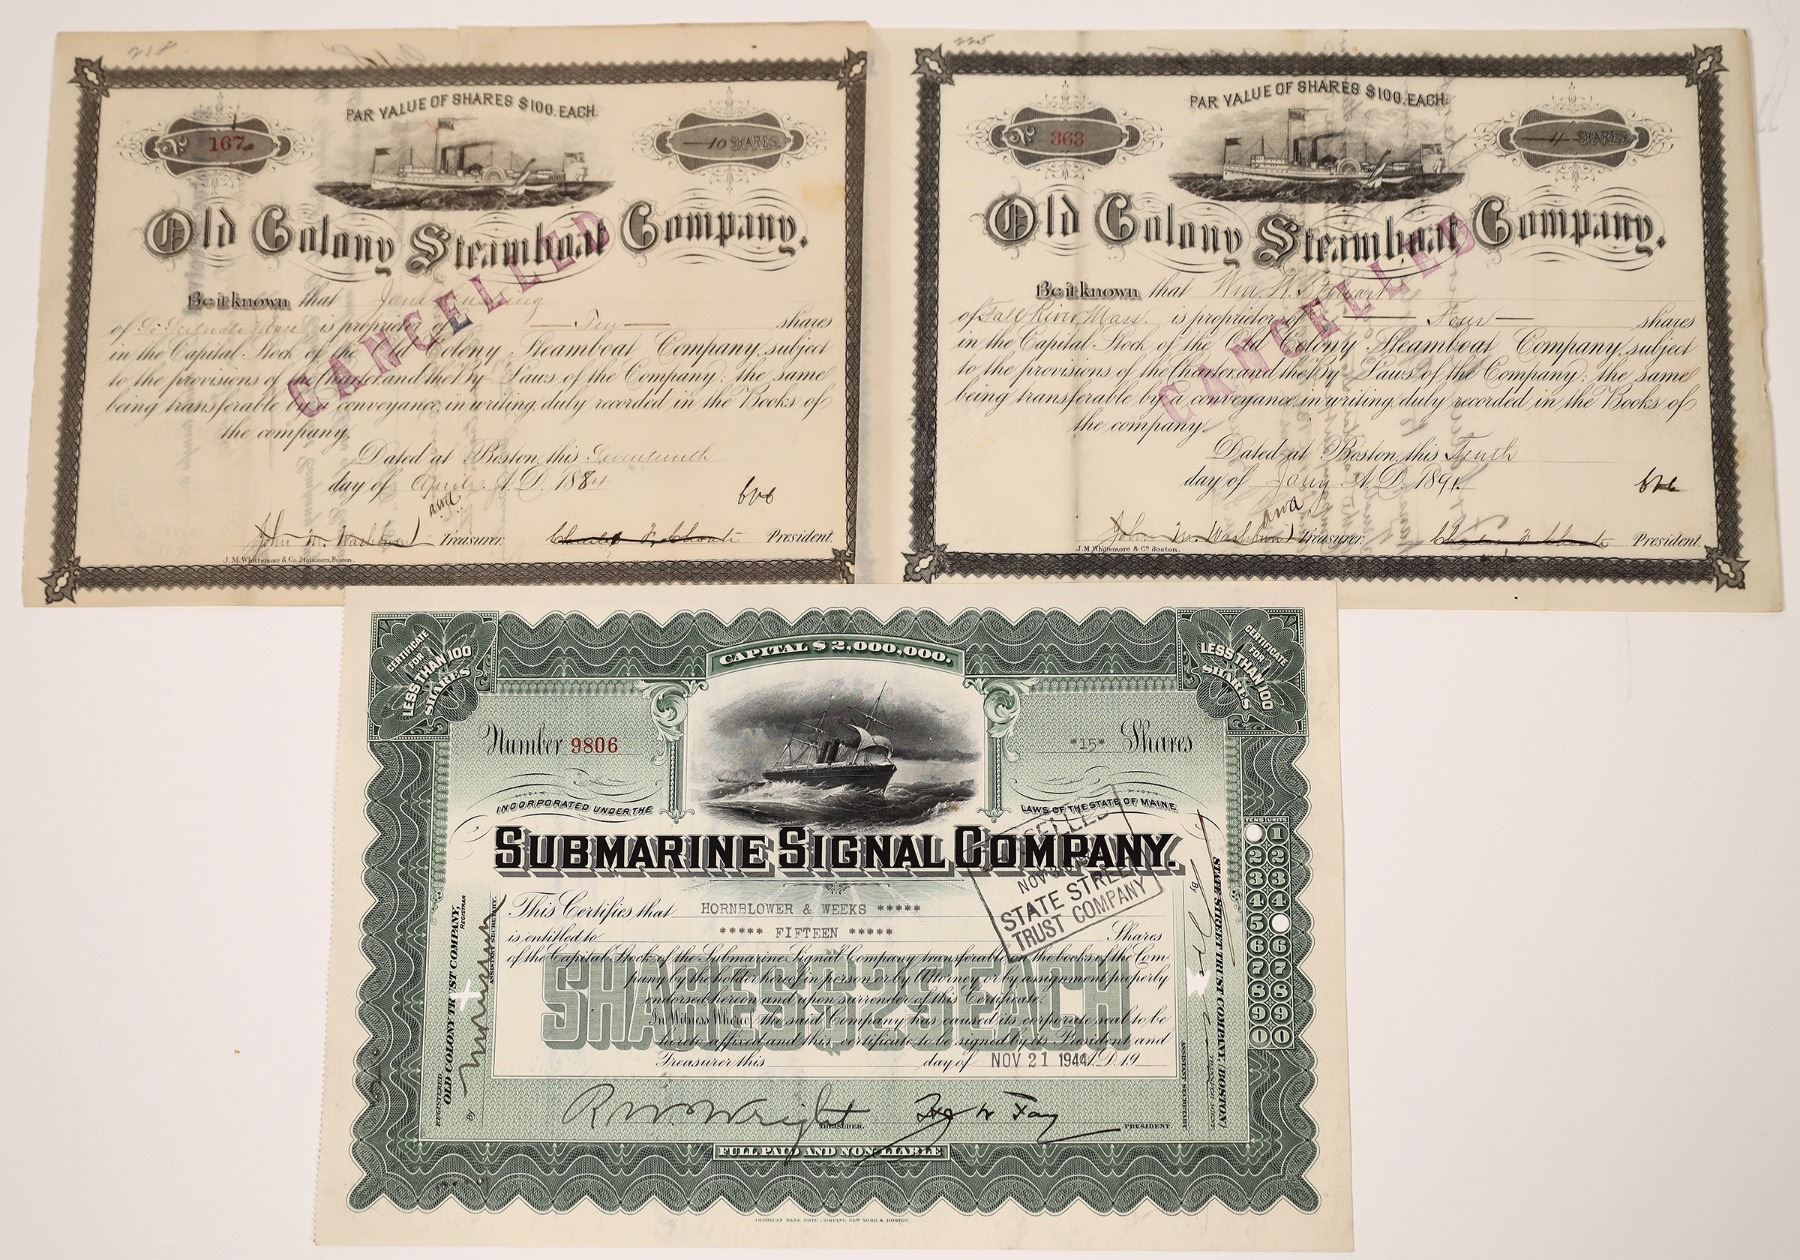 218
PAR VALUE OF SHARES $100. EACH.
No 167
10 SHARES.
Old Colony Steamboat Company.
CANCELLED
Be it known that
of So Scituate Mass is proprietor of — Ten — shares
in the Capital Stock of the Old Colony Steamboat Company, subject
to the provisions of the Charter, and the By Laws of the Company: the same
being transferable by a conveyance in writing, duly recorded in the Books of
the company.
Dated at Boston, this Seventeenth
day of April A.D. 1884
John M. Washburn Treasurer. Charles F. Choate President.
J. M. Whittemore & Co. Stationers, Boston.
225
PAR VALUE OF SHARES $100. EACH.
No 363
4 SHARES.
Old Colony Steamboat Company.
CANCELLED
Be it known that Wm H.
of Fall River, Mass. is proprietor of — Four — shares
in the Capital Stock of the Old Colony Steamboat Company, subject
to the provisions of the Charter, and the By Laws of the Company: the same
being transferable by a conveyance in writing, duly recorded in the Books of
the company.
Dated at Boston, this Tenth
day of A.D. 1891
John M. Washburn Treasurer. Charles F. Choate President.
J. M. Whittemore & Co. Boston.
CERTIFICATE FOR LESS THAN 100 SHARES
CAPITAL $2,000,000.
CERTIFICATE FOR LESS THAN 100 SHARES
Number 9806
*15* Shares
INCORPORATED UNDER THE LAWS OF THE STATE OF MAINE
SUBMARINE SIGNAL COMPANY.
CANCELLED
NOV
STATE STREET
TRUST COMPANY
This Certifies that HORNBLOWER & WEEKS *****
is entitled to ***** FIFTEEN ***** Shares
of the Capital Stock of the Submarine Signal Company transferable on the books of the Com-
pany by the holder hereof in person or by Attorney or by assignment properly
endorsed hereon and upon surrender of this Certificate.
In Witness Whereof, the said Company has caused its corporate seal to be
hereto affixed and this certificate to be signed by its President and
Treasurer this day of NOV 21 1944 A.D. 19
SHARES $25 EACH
R. W. Wright TREASURER. H. J. W. Fay PRESIDENT
FULL PAID AND NON-LIABLE
AMERICAN BANK NOTE COMPANY, NEW YORK & BOSTON.
REGISTERED
OLD COLONY TRUST COMPANY,
REGISTRAR
By
ASSISTANT SECRETARY.
STATE STREET TRUST COMPANY, (BOSTON)
TENS UNITS
1
2 2
3 3
4 4
5
6 6
7 7
8 8
9 9
0 0